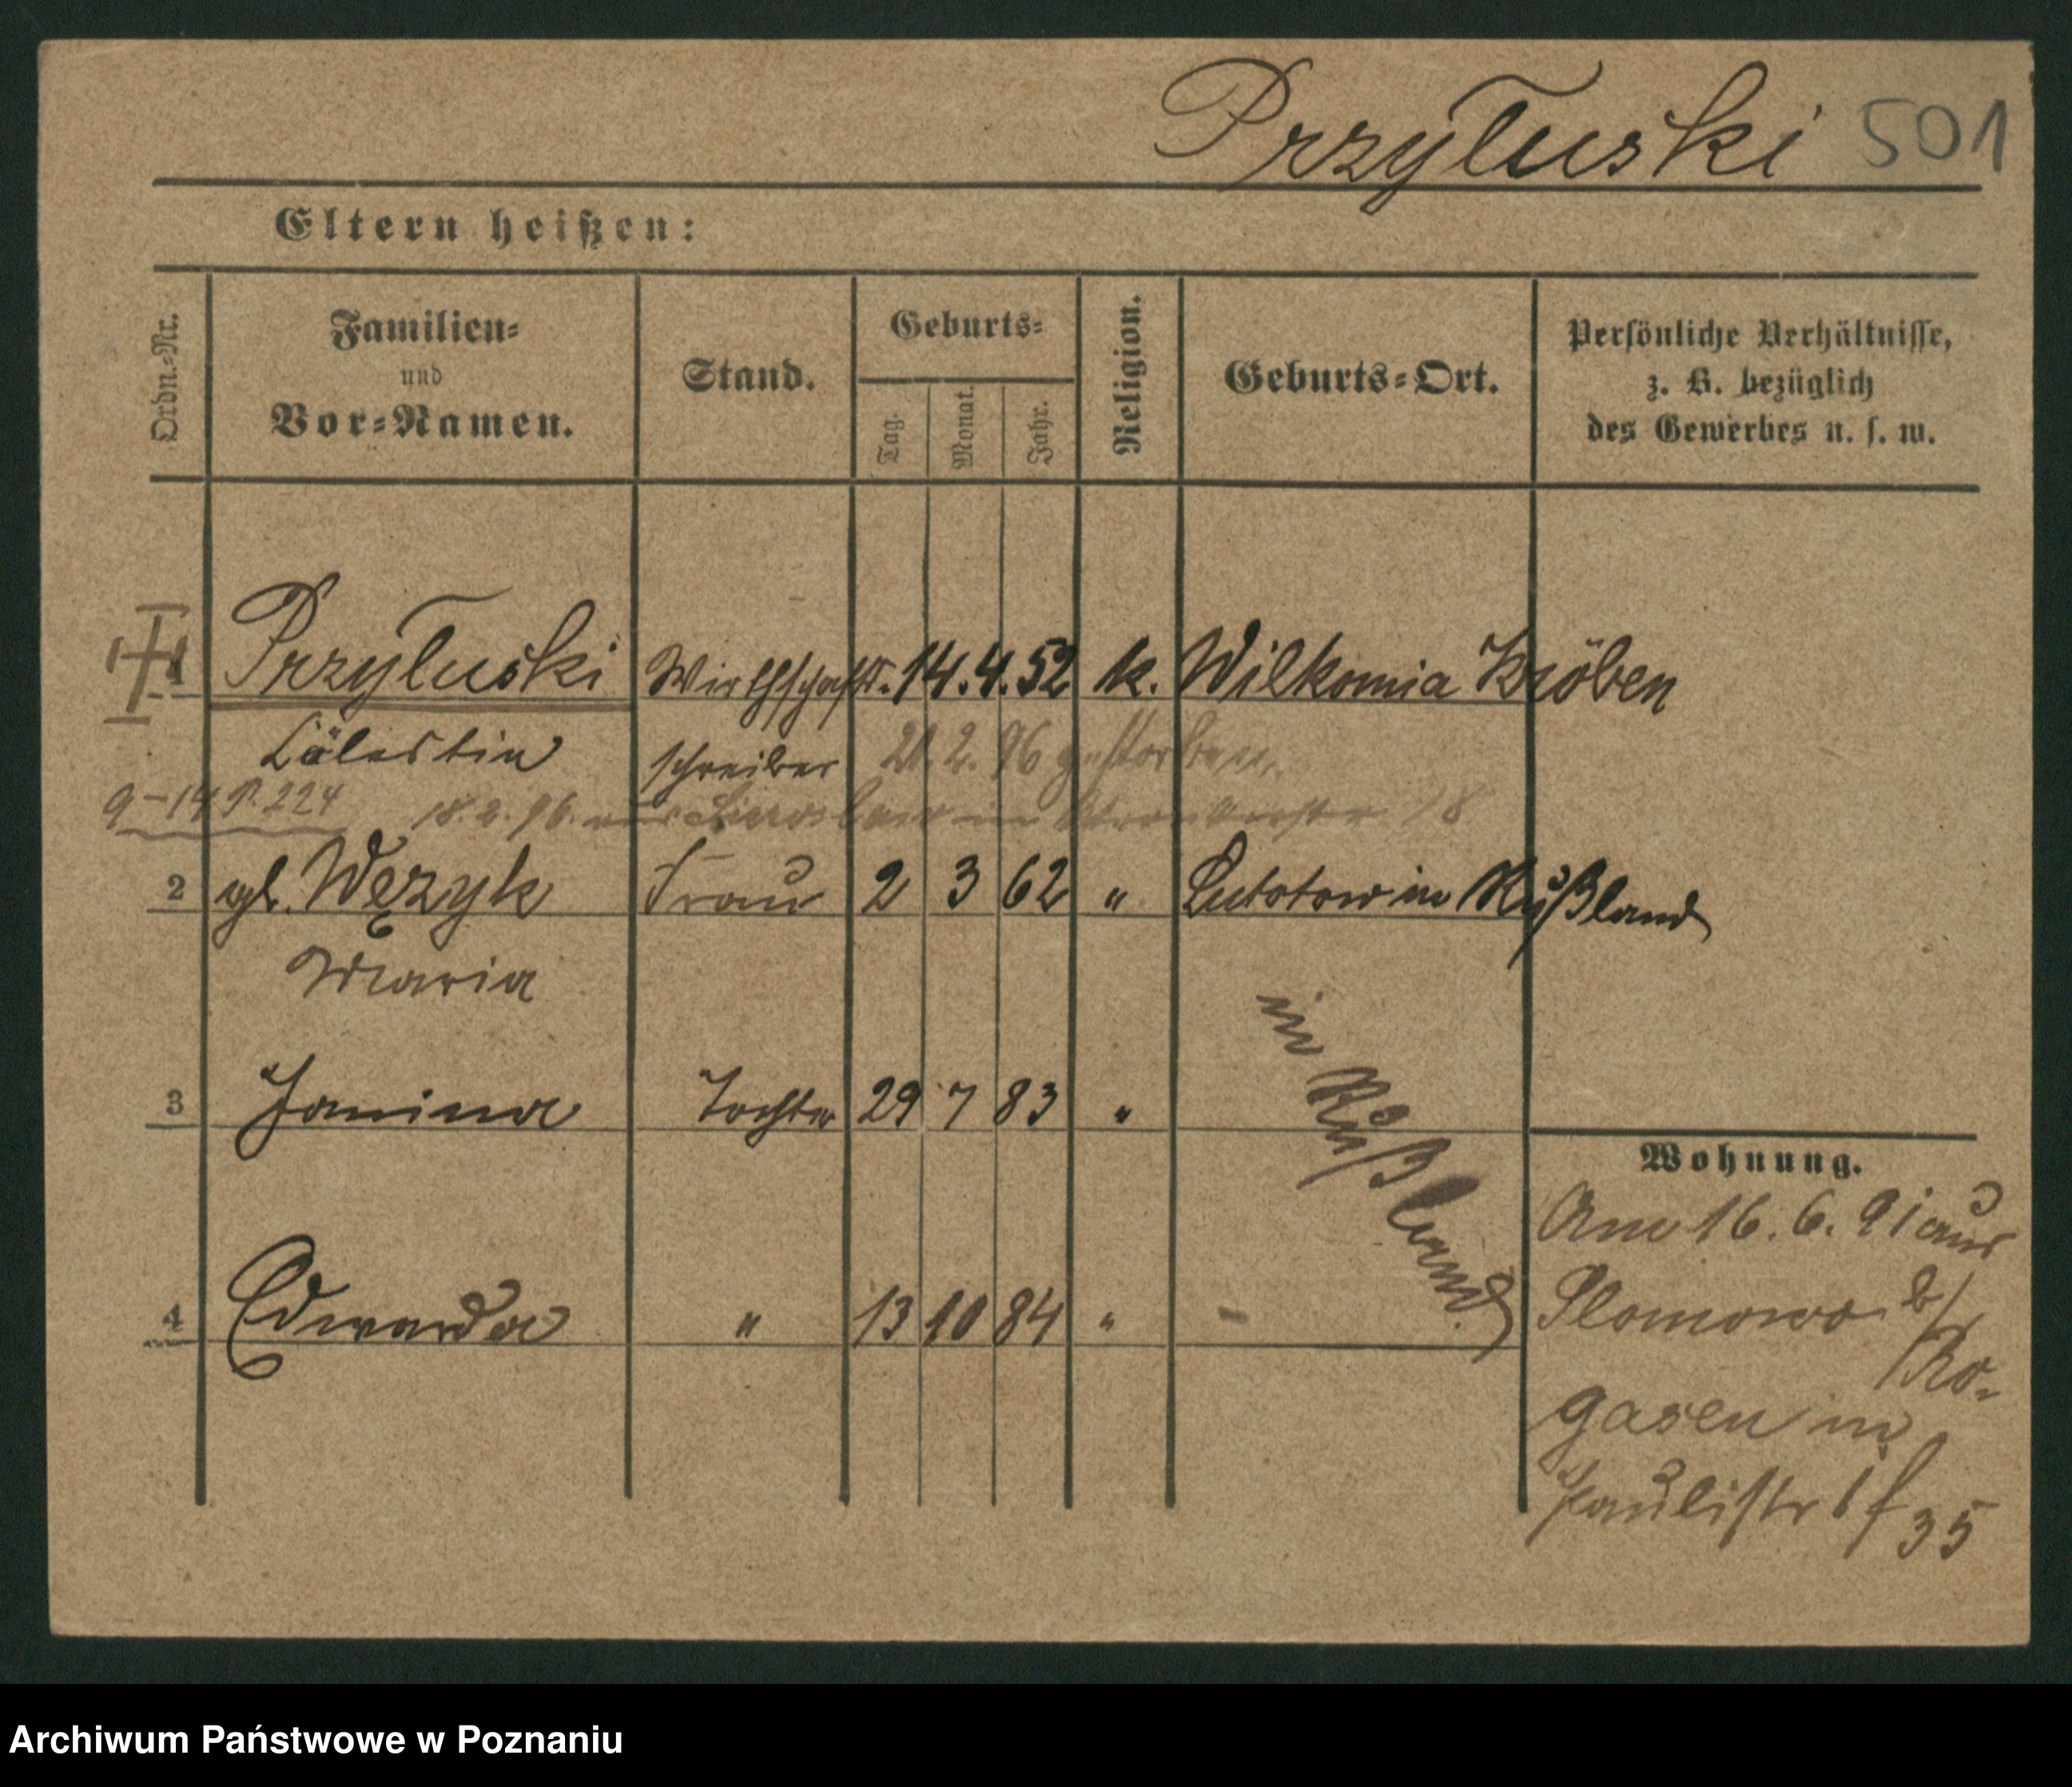 Przyłuski 501
Eltern heißen:
Ordn.-Nr.
Familien-
und
Vor-Namen.
Stand.
Geburts-
Tag.
Monat.
Jahr.
Religion.
Geburts-Ort.
Persönliche Verhältnisse,
z. B. bezüglich
des Gewerbes u. s. w.
1 Przyłuski Wirthschafts- 14. 4. 52 k. Wilkonia Kröben
Cölestin schreiber 21. 2. 96 gestorben.
9-14 P. 224 18. 2. 96. 18
2 gb. Węzyk Frau 2 3 62 " Lututow in Rußland
Maria
3 Janina Tochter 29 7 83 "
in Rußland.
4 Edwarda " 13 10 84 "
Wohnung.
Am 16. 6. 91 aus
Slomowo b/
Ro-
gasen in
Paulistr 1 f
35
Archiwum Państwowe w Poznaniu